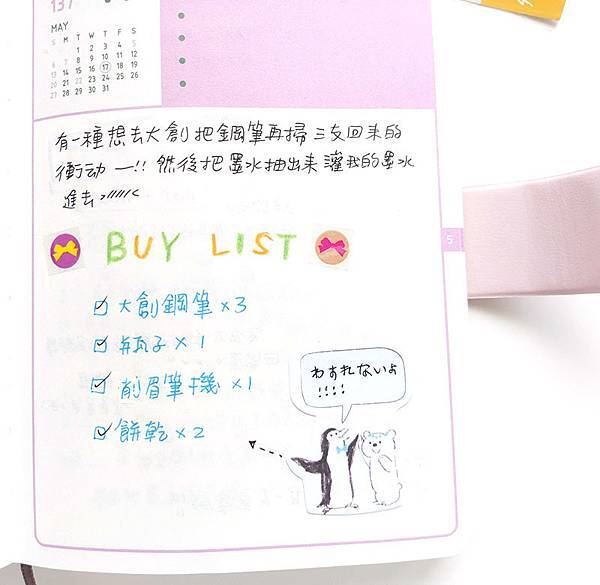 137
MAY
S M T W T F S
1 2 3 4 5
6 7 8 9 10 11 12
13 14 15 16 17 18 19
20 21 22 23 24 25 26
27 28 29 30 31
有一種想去大創把鋼筆再掃三支回来的
衝动 一!! 然後把墨水抽出来灌我的墨水
進去>/////<
5
BUY LIST
大創鋼筆×3
瓶子×1
削眉筆機×1
餅乾×2
わすれないよ
!!!!